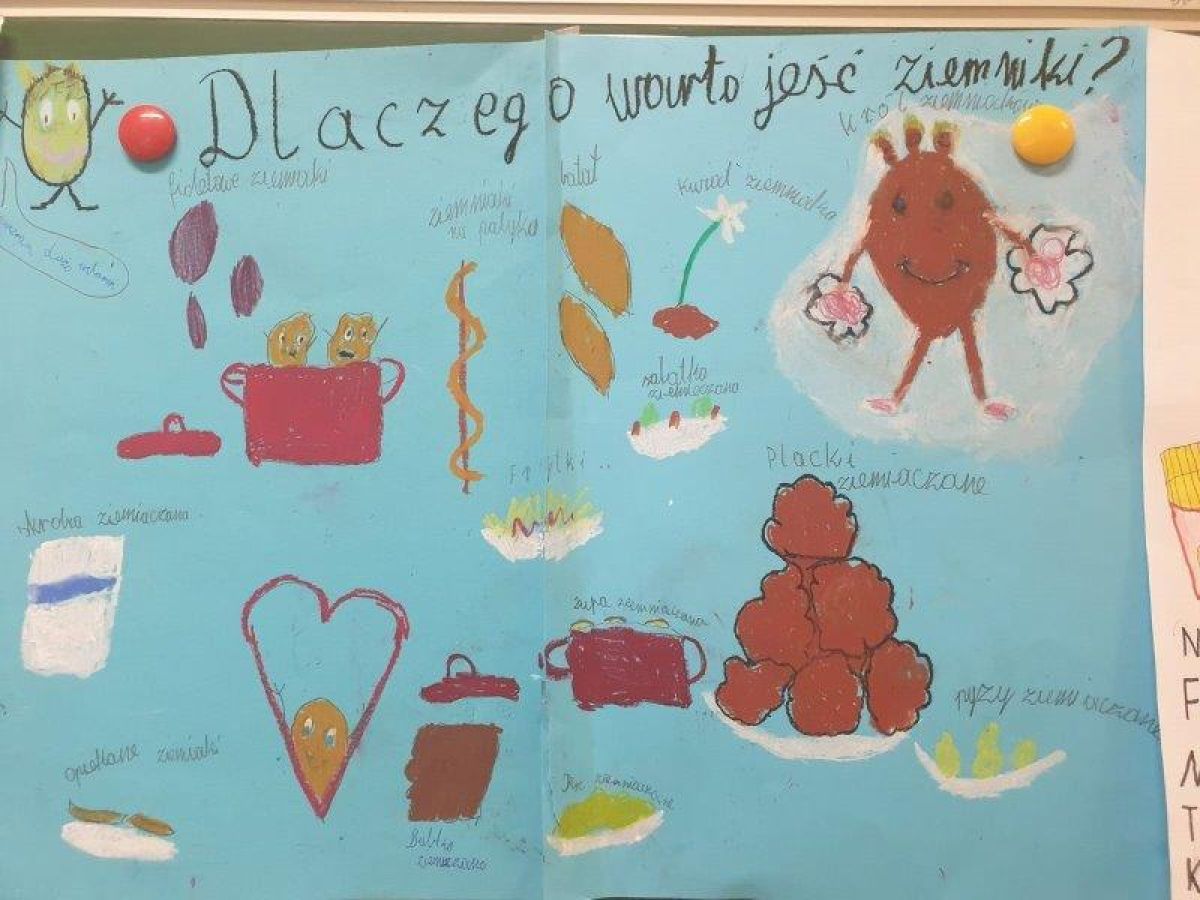 Dlaczego warto jeść ziemniki?
król ziemniaków
fioletowe ziemiaki
ziemniaki
na patyku
batat
kwiat ziemniaka
dużo witamin
sałatka
ziemniaczana
Frytki
Placki
ziemiaczane
skrobia ziemiaczana
zupa ziemniaczana
pyzy ziemiaczane
opiekane ziemiaki
Babka
ziemniaczana
N
F
A
T
K